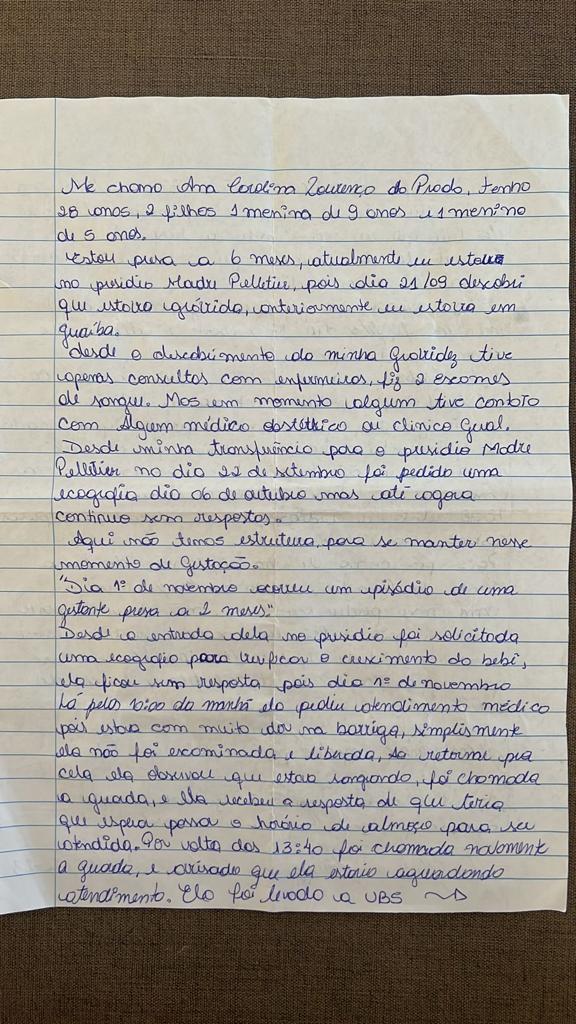 Me chamo Ana Carolina Lourenço do Prado, tenho
28 anos, 2 filhos 1 menina de 9 anos e 1 menino
de 5 anos.
Estou presa a 6 meses, atualmente eu estou
no presidio Madre Pelletier, pois dia 21/09 descobri
que estava grávida, anteriormente eu estava em
guaíba.
desde o descobrimento da minha Gravidez tive
apenas consultas com enfermeiros, fiz 2 exames
de sangue. Mas em momento algum tive contato
com Algum médico obstétrico ou clinico Geral.
Desde minha transferência para o presidio Madre
Pelletier no dia 22 de setembro foi pedido uma
ecografia dia 06 de outubro mas até agora
continuo sem respostas.
Aqui não temos estrutura para se manter nesse
momento de Gestação.
"Dia 1º de novembro ocorreu um episódio de uma
gestante presa a 2 meses."
Desde a entrada dela no presidio foi solicitada
uma ecografia para verificar o crescimento do bebê,
ela ficou sem resposta pois dia 1º de novembro
Lá pelas 10:00 da manhã ela pediu atendimento médico
pois estava com muita dor na barriga, simplismente
ela não foi escaminada e liberada, Ao retornar pra
cela ela observou que estava sangrando, foi chamada
a guarda, e Ela recebeu a resposta de que teria
que espera passa o horário de almoço para ser
atendida. Por volta das 13:40 foi chamada novamente
a guarda, e avisado que ela estaria aguardando
atendimento. Ela foi levada a UBS